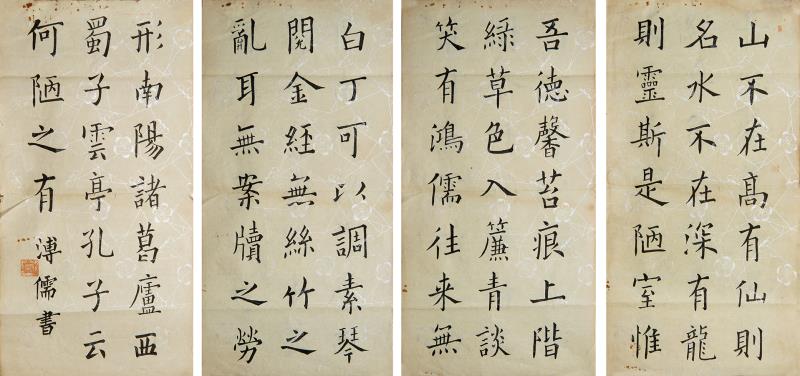 山不在高有仙則
名水不在深有龍
則靈斯是陋室惟
吾德馨苔痕上階
綠草色入簾青談
笑有鴻儒往来無
白丁可以調素琴
閱金經無絲竹之
亂耳無案牘之勞
形南陽諸葛廬西
蜀子雲亭孔子云
何陋之有
溥儒書